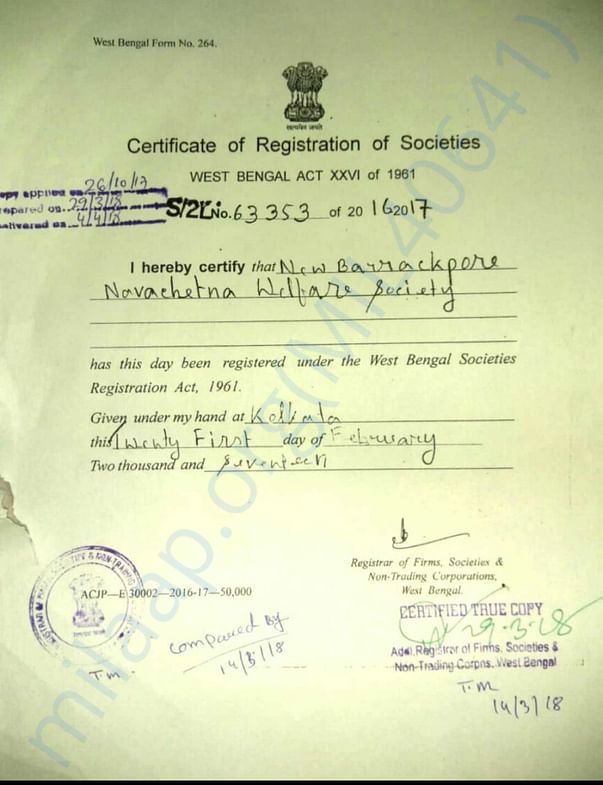 West Bengal Form No. 264.
सत्यमेव जयते
Certificate of Registration of Societies
WEST BENGAL ACT XXVI of 1961
opy applied on 26/10/17
repared on 29/3/18
elivered on 4/4/18
S/2L No. 63353 of 2016 2017
I hereby certify that New Barrackpore
Navachetna Welfare Society
has this day been registered under the West Bengal Societies
Registration Act, 1961.
Given under my hand at Kolkata
this Twenty First day of February
Two thousand and Seventeen
Registrar of Firms, Societies &
Non-Trading Corporations,
West Bengal.
ACJP—E 30002—2016-17—50,000
CERTIFIED TRUE COPY
29.3.18
Addl. Registrar of Firms, Societies &
Non-Trading Corpns. West Bengal
Compared By
14/3/18
T.M.
T.M
14/3/18
milaap.org(MIL40641)